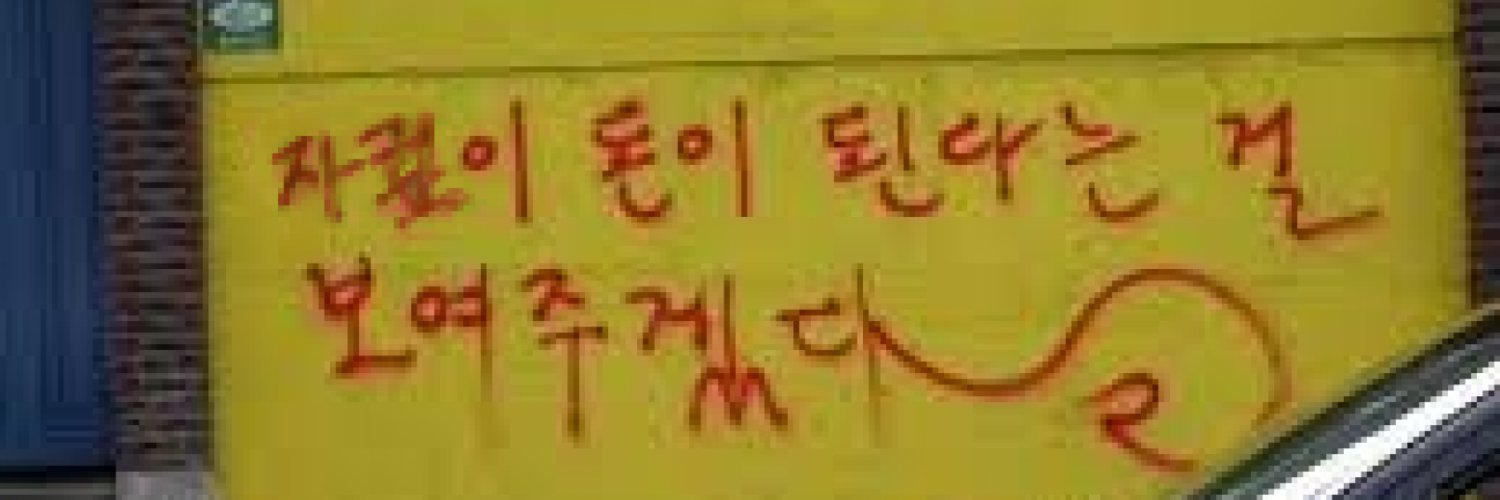 자귊이 돈이 된다는 걸
보여주겠다